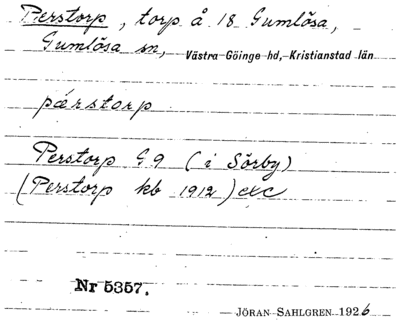 Perstorp, torp å 18 Gumlösa,
Gumlösa sn, Västra Göinge hd, Kristianstad län
pǽrstorp
Perstorp G.9 (i Sörby)
(Perstorp kb 1912) etc
Nr 5357.
JÖRAN SAHLGREN 1926